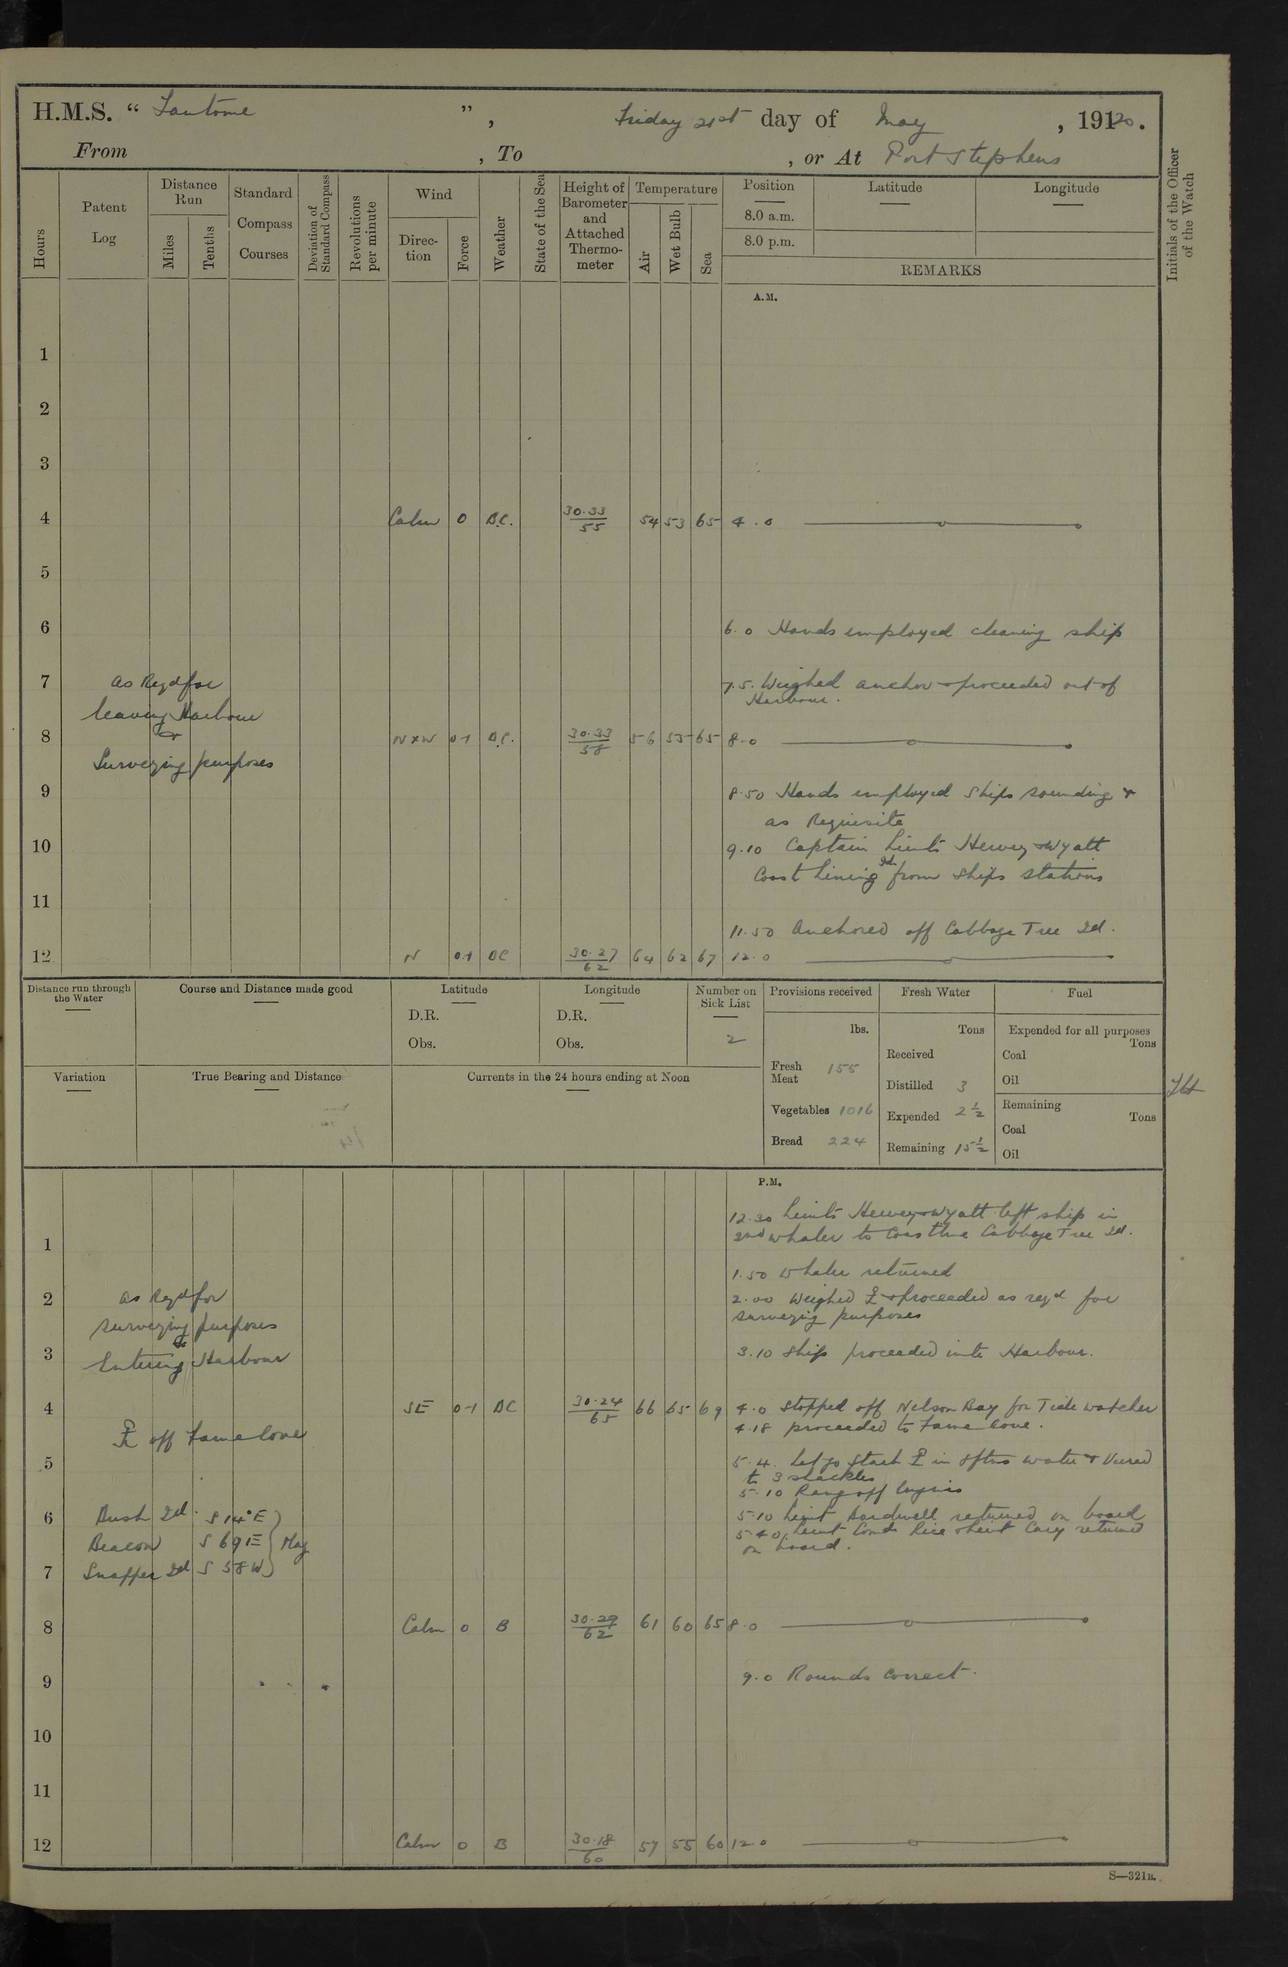 H.M.S. “ Fantome ” , Friday 21st day of May , 191 20 .
From , To , or At Port Stephens
Hours
Patent Log
Distance Run
Miles
Tenths
Standard Compass Courses
Deviation of Standard Compass
Revolutions per minute
Wind
Direc- tion
Force
Weather
State of the Sea
Height of Barometer and Attached Thermo- meter
Temperature
Air
Wet Bulb
Sea
Position
8.0 a.m.
8.0 p.m.
Latitude
Longitude
REMARKS
Initials of the Officer of the Watch
A.M.
1
2
3
4 Calm 0 B.C. 30.33/55 54 53 65 4.0
5
6 6.0 Hands employed cleaning ship
7 as Reqd for 7.5. Weighed anchor & proceeded out of
Harbour.
leaving Harbour
8 & N x W 0.1 B.C. 30.33/58 56 55 65 8.0
Surveying purposes
9 8.50 Hands employed Ships sounding &
as Requisite
10 9.10 Captain Lieuts Hervey & Wyatt
Coast Lining Id from Ships stations
11
11.50 Anchored off Cabbage Tree Id.
12 N 0.1 BC 30.27/62 64 62 67 12.0
Distance run through the Water
Course and Distance made good
Latitude
D.R.
Obs.
Longitude
D.R.
Obs.
Number on Sick List
2
Variation
True Bearing and Distance
Currents in the 24 hours ending at Noon
Provisions received
lbs.
Fresh Meat 155
Vegetables 1016
Bread 224
Fresh Water
Tons
Received
Distilled 3
Expended 2 1/2
Remaining 15 1/2
Fuel
Expended for all purposes
Tons
Coal
Oil
Remaining
Tons
Coal
Oil
P.M.
12.30 Lieuts Hervey & Wyatt left ship in
2nd whaler to Coastline Cabbage Tree Id.
1
1.50 Whaler returned
2 as Reqd for 2.00 Weighed & proceeded as reqd for
surveying purposes
surveying purposes
3 &
Entering Harbour 3.10 Ship proceeded into Harbour.
4 SE 0-1 BC 30.24/65 66 65 69 4.0 Stopped off Nelson Bay for Tide watcher
4.18 proceeded to Fame Cove.
off Fame Cove
5 5.4. Let go Starb in 8ftms water & Veered
to 3 shackles
5.10 Rang off Engines
6 Bush Id. S 14° E 5.10 Lieut Bardwell returned on board
Beacon S 69 E Mag 5.40 Lieut Comdr Rice & Lieut Cary returned
on board.
7 Snapper Id S 58 W
8 Calm 0 B 30.29/62 61 60 65 8.0
9 9.0 Rounds Correct.
10
11
12 Calm 0 B 30.18/60 57 55 60 12.0
S—321B.